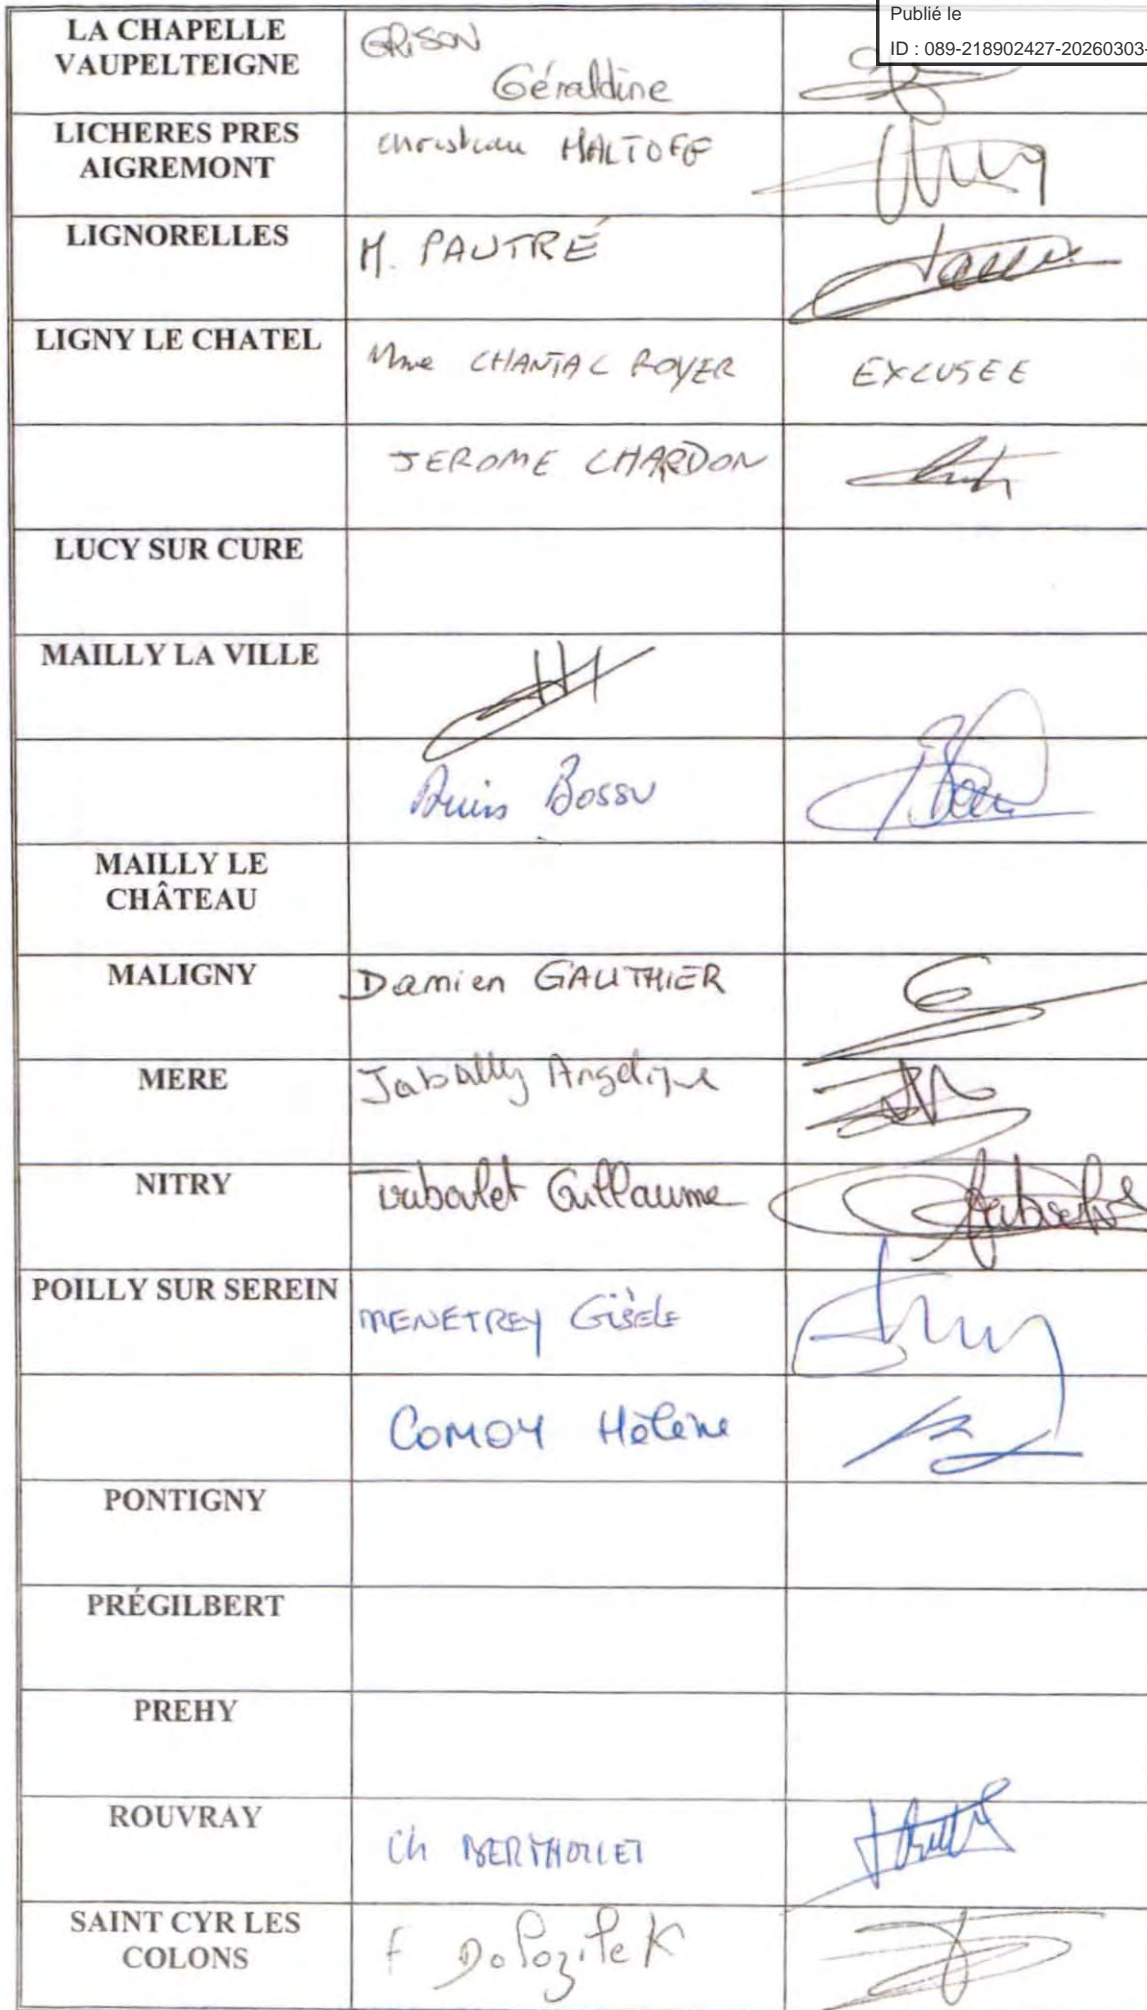 Publié le
ID : 089-218902427-20260303-
LA CHAPELLE
VAUPELTEIGNE
GRISON
Géraldine
LICHERES PRES
AIGREMONT
Christian MALTOFF
LIGNORELLES
M. PAUTRÉ
LIGNY LE CHATEL
Mme CHANTAL ROYER
EXCUSEE
JEROME CHARDON
LUCY SUR CURE
MAILLY LA VILLE
Bossu
MAILLY LE
CHÂTEAU
MALIGNY
Damien GAUTHIER
MERE
Angélique
NITRY
Guillaume
POILLY SUR SEREIN
MENETREY Gisèle
COMOY Hélène
PONTIGNY
PRÉGILBERT
PREHY
ROUVRAY
Ch BERTHOLLET
SAINT CYR LES
COLONS
F